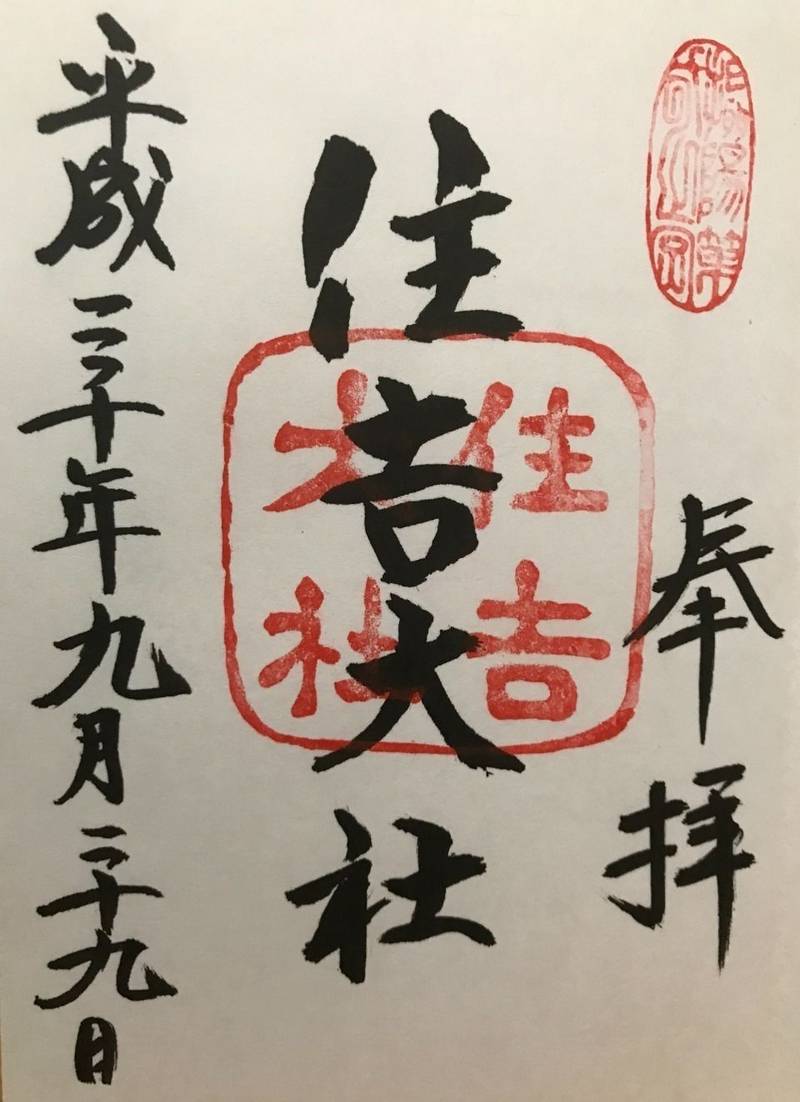 奉拝
住吉大社
住吉
大社
平成三十年九月二十九日